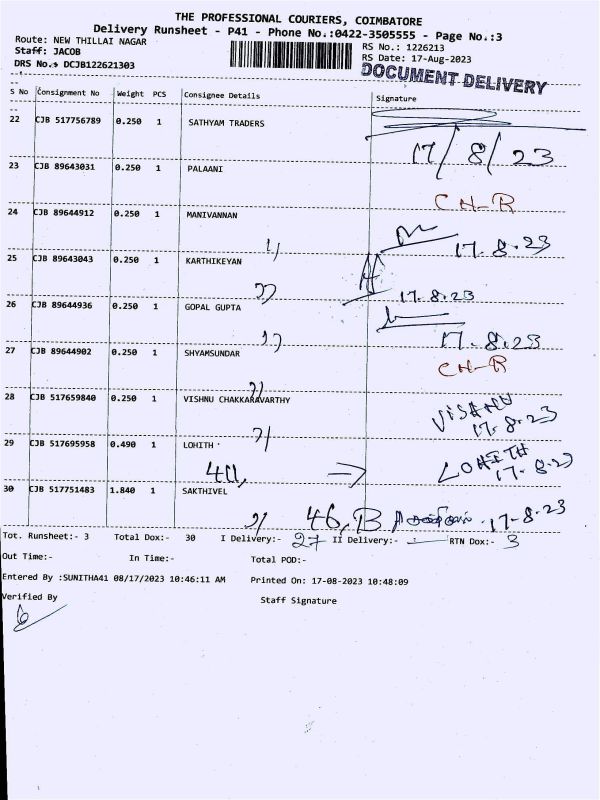 THE PROFESSIONAL COURIERS, COIMBATORE
Delivery Runsheet - P41 - Phone No.:0422-3505555 - Page No.:3
Route: NEW THILLAI NAGAR
RS No.: 1226213
Staff: JACOB
RS Date: 17-Aug-2023
DRS No.: DCJB122621303
DOCUMENT DELIVERY
S No Consignment No Weight PCS Consignee Details Signature
22 CJB 517756789 0.250 1 SATHYAM TRADERS
17/8/23
23 CJB 89643031 0.250 1 PALAANI
CH-R
24 CJB 89644912 0.250 1 MANIVANNAN
17.8.23
25 CJB 89643043 0.250 1 KARTHIKEYAN
17.8.23
26 CJB 89644936 0.250 1 GOPAL GUPTA
17.8.23
27 CJB 89644902 0.250 1 SHYAMSUNDAR
CH-R
28 CJB 517659840 0.250 1 VISHNU CHAKKARAVARTHY
VISHNU
17.8.23
29 CJB 517695958 0.490 1 LOHITH
LOHITH
17-8-23
30 CJB 517751483 1.840 1 SAKTHIVEL
46,B 17-8-23
Tot. Runsheet:- 3 Total Dox:- 30 I Delivery:- 27 II Delivery:- RTN Dox:- 3
Out Time:- In Time:- Total POD:-
Entered By :SUNITHA41 08/17/2023 10:46:11 AM Printed On: 17-08-2023 10:48:09
Verified By Staff Signature